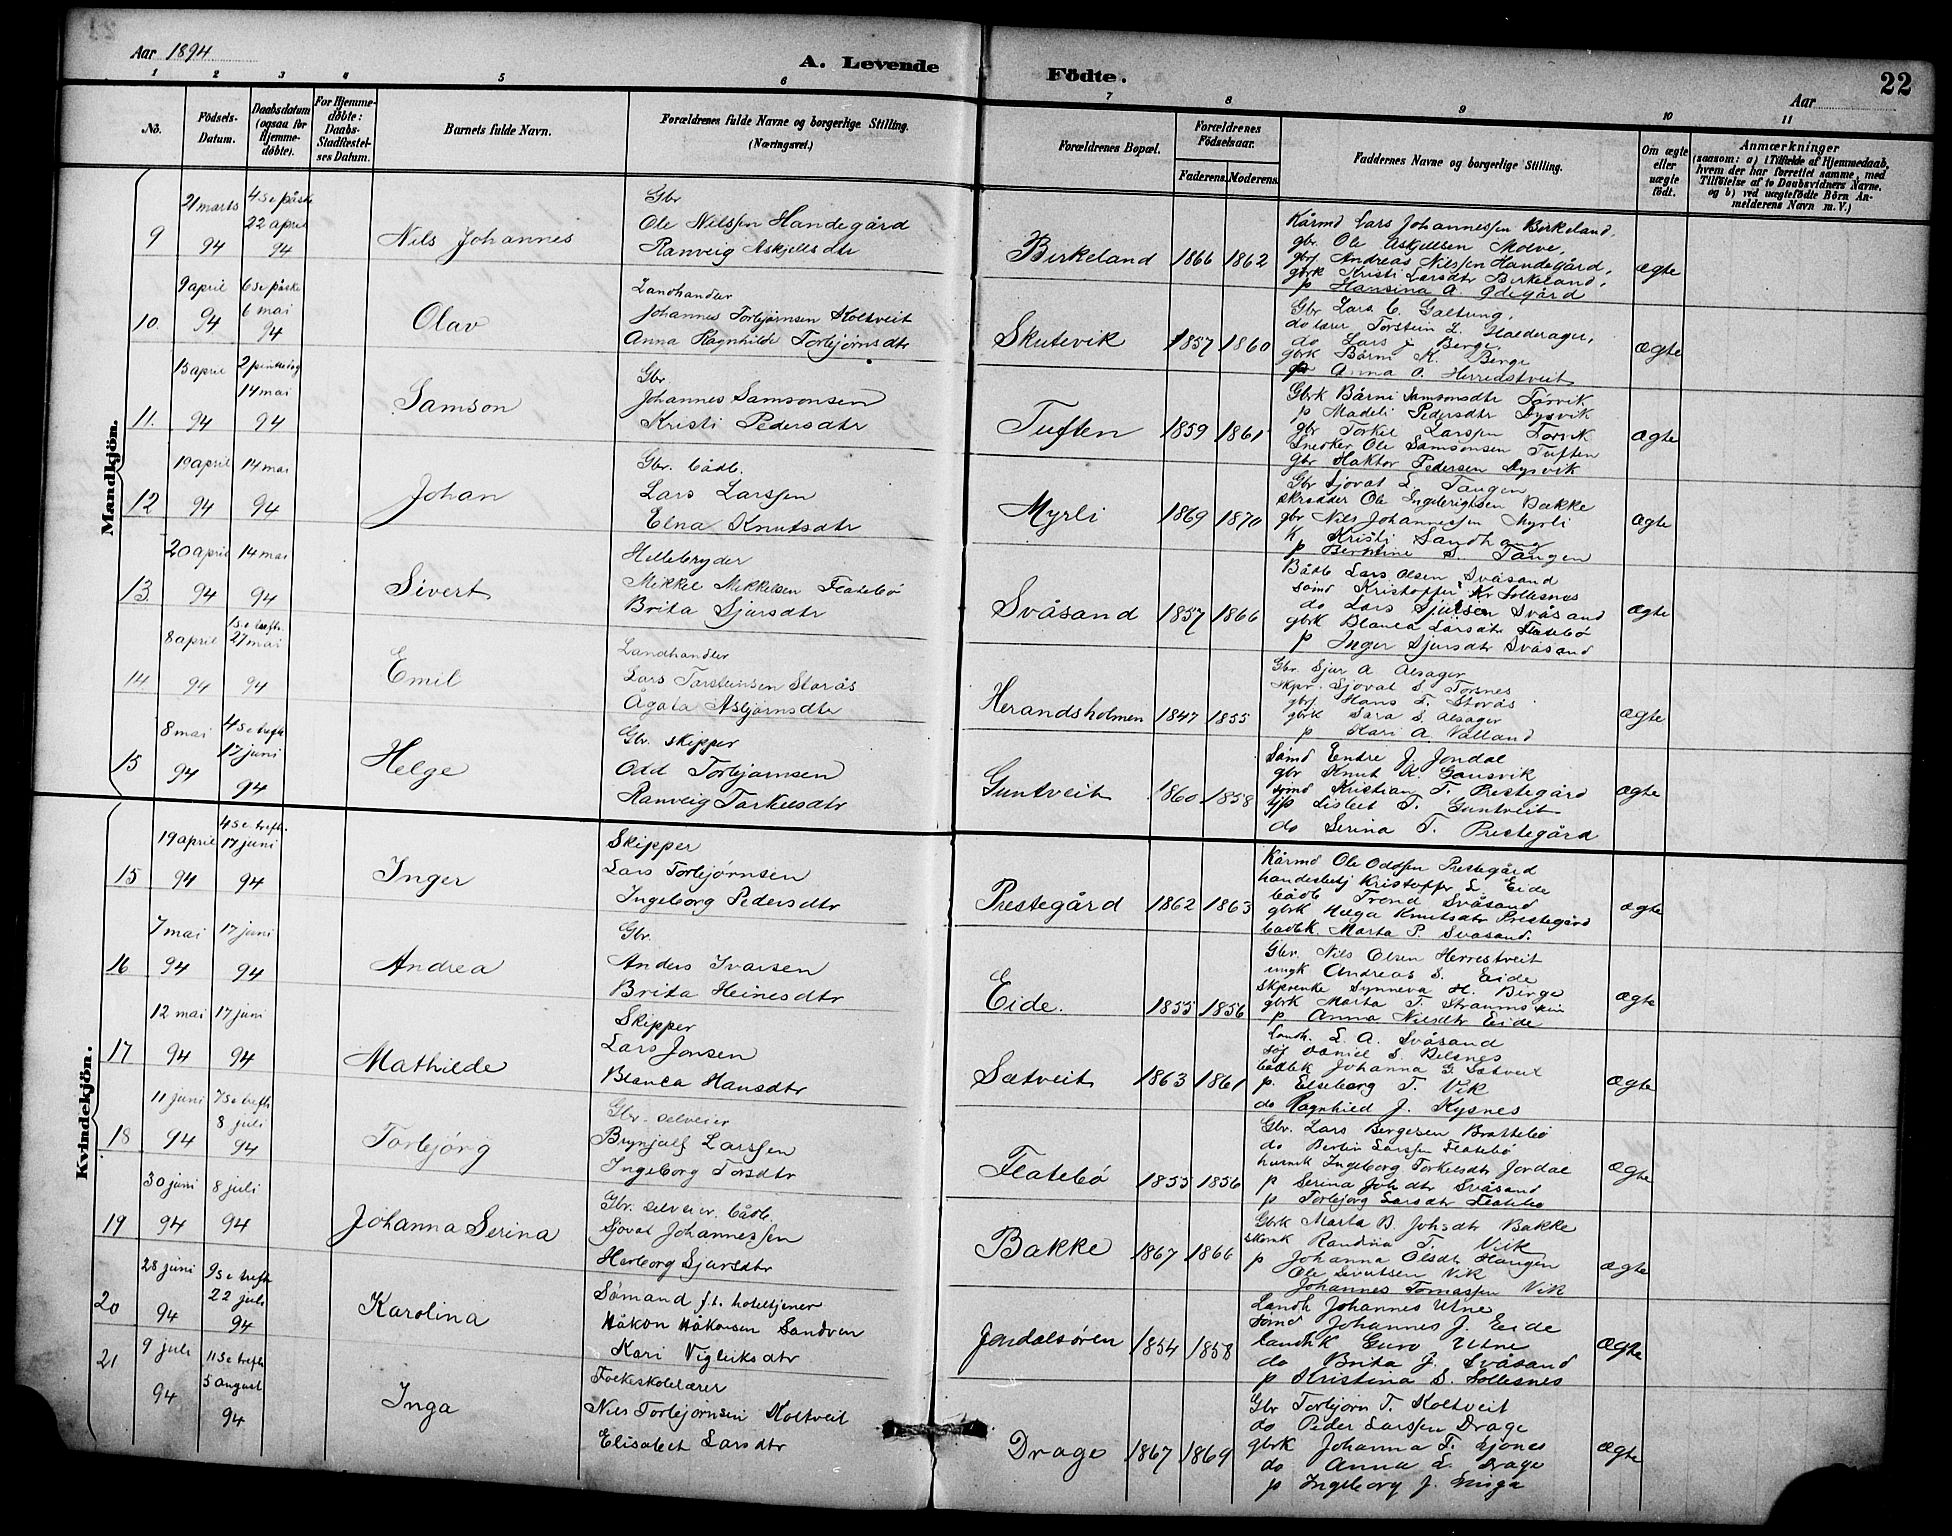 Aar 1894
A. Levende Födte.
22
Aar
1 2 3 4 5 6 7 8 9 10 11
No.
Födsels-Datum.
Daabsdatum (ogsaa for Hjemme-døbte).
For Hjemme-døbte: Daabs-Stadfæstelses Datum.
Barnets fulde Navn.
Forældrenes fulde Navne og borgerlige Stilling. (Næringsvei.)
Forældrenes Bopæl.
Forældrenes Födselsaar. Faderens. Moderens.
Faddernes Navne og borgerlige Stilling.
Om ægte eller uægte födt.
Anmærkninger
(saasom: a) i Tilfælde af Hjemmedaab, hvem der har forrettet samme, med Tilföielse af to Daabsvidners Navne, og b) ved uægtefödte Börn Anmelderens Navn m. V.)
Mandkjön.
9 21 marts 94 4 s e påske 22 april 94 Nils Johannes
Gbr
Ole Nilssen Handegård
Ranveig Askjellsdtr
Birkeland 1866 1862
Kårmd Lars Johannessen Birkeland,
gbr. Ole Askjellsen Molve,
gbrs Andreas Nilssen Handegård,
gbrk Kristi Larsdtr Birkeland,
p Hansina A. Ødegård
ægte
10. 9 april 94 6 s e påske 6 mai 94 Olav
Landhandler
Johannes Torbjørnsen Holtveit
Anna Ragnhilde Torbjørnsdtr
Skutevik 1857 1860
Gbr Lars C. Galtung,
do lærer Torstein L. Halderager,
do Lars J Berge,
gbrk Børni K. Berge
p Anna O. Herredstveit
ægte
11. 15 april 94 2 pinsedag 14 mai 94 Samson
Gbr.
Johannes Samsonsen
Kristi Pedersdtr
Tuften 1859 1861
Gbrk Bårni Samsonsdtr Torvik
p Madeli Pedersdtr Dysvik
gbr Torkel Larssen Torvik
Snedker Ole Samsonsen Tuften
gbr Haktor Pedersen Dysvik
ægte
12 19 april 94 14 mai 94 Johan
Gbr. bådb.
Lars Larssen
Elna Knutsdtr
Myrli 1869 1870
Gbr Sjovat L. Tangen
skrædder Ole Ingebrigtsen Bakke
gbr Nils Johannessen Myrli
k Kristi Sandhaug
p Berntine S. Tangen
ægte
13. 20 april 94 14 mai 94 Sivert
Hellebryder
Mikkel Mikkelsen Flatebø
Brita Sjursdtr
Svåsand 1857 1866
Bådb Lars Olsen Svåsand
sømd Kristoffer Kr Sollesnes
do Lars Sjursen Svåsand
gbrk Blanca Larsdtr Flatebø
p Inger Sjursdtr Svåsand
ægte
14. 8 april 94 1 s e trefh. 27 mai 94 Emil
Landhandler
Lars Torsteinsen Storås
Ågata Asbjørnsdtr
Herandsholmen 1847 1855
Gbr. Sjur A Alsager
skpr. Sjovat S Torsnes
gbrs Hans T. Storås
gbrk Sara S. Alsager
p Kari A. Valland
ægte
15 8 mai 94 4 s e trefh 17 juni 94 Helge
Gbr. skipper
Odd Torbjørnsen
Ranveig Torkelsdtr
Guntveit 1860 1858
Sømd Endre J. Jondal
gbr Knut K. Gausvik
sømd Kristian T. Prestegård
tjp Lisbet T. Guntveit
do Serina T. Prestegård
ægte
Kvindekjön.
15 19 april 94 4 s e trefh. 17 juni 94 Inger
Skipper
Lars Torbjørnsen
Ingeborg Pedersdtr
Prestegård 1862 1863
Kårmd Ole Oddsen Prestegård
handelsbetj Kristoffer L. Eide
bådb Trond Svåsand
gbrk Helga Knutsdtr Prestegård
bådbk. Marta P. Svåsand.
ægte
16 7 mai 94 17 juni 94 Andrea
Gbr.
Anders Ivarsen
Brita Heinesdtr
Eide. 1855 1856
Gbr. Nils Olsen Herrestveit
ungk Andreas S. Eide
skprenke Synneva H. Berge
gbrk Marta T. Strømskin
p Anna Nilsdtr Eide
ægte
17 12 mai 94 17 juni 94 Mathilde
Skipper
Lars Jonsen
Blanca Hansdtr
Sætveit 1863 1861
Landh. L. A. Svåsand
Daniel S. Belsnes
bådbk Johanna G. Sætveit
p. Elseborg T. Vik
do Ragnhild J. Kysnes
ægte
18 11 juni 94 7 s e trefh 8 juli 94 Torbjörg
Gbr. selveier
Brynjulf Larssen
Ingeborg Torsdtr
Flatebø 1855 1856
Gbr. Lars Bergesen Brattebø
do Bertin Larssen Flatebø
husmk Ingeborg Torkelsdtr Jondal
p Serina Johsdtr Svåsand
p Torbjörg Larsdtr Flatebø
ægte
19 30 juni 94 8 juli 94 Johanna Serina
Gbr. selveier. bådb.
Sjovat Johannessen
Herborg Sjursdtr
Bakke 1867 1866
Gbrk Marta B. Johsdtr Bakke
Randina T. Vik
p Johanna Olsdtr Haugen
Ole Sivertsen Vik
Johannes Tomassen Vik
ægte
20 28 juni 94 9 s e trefh 22 juli 94 Karolina
Sømand f.t. hoteltjener
Håkon Håkonsen Sandven
Kari Vigleiksdtr
Jondalsøren 1854 1858
Landh Johannes Utne
sømd Johannes J. Eide
landhk Guro Utne
do Brita J. Svåsand
p Kristina S. Sollesnes
ægte
21 9 juli 94 11 s e trefh 5 august 94 Inga
Folkeskolelærer
Nils Torbjørnsen Holtveit
Elisabet Larsdtr
Drage 1867 1869
Gbr Torbjørn T. Holtveit
do Peder Larssen Drage
gbrk Johanna T. Sjones
do Anna L. Drage
p Ingeborg J.
ægte